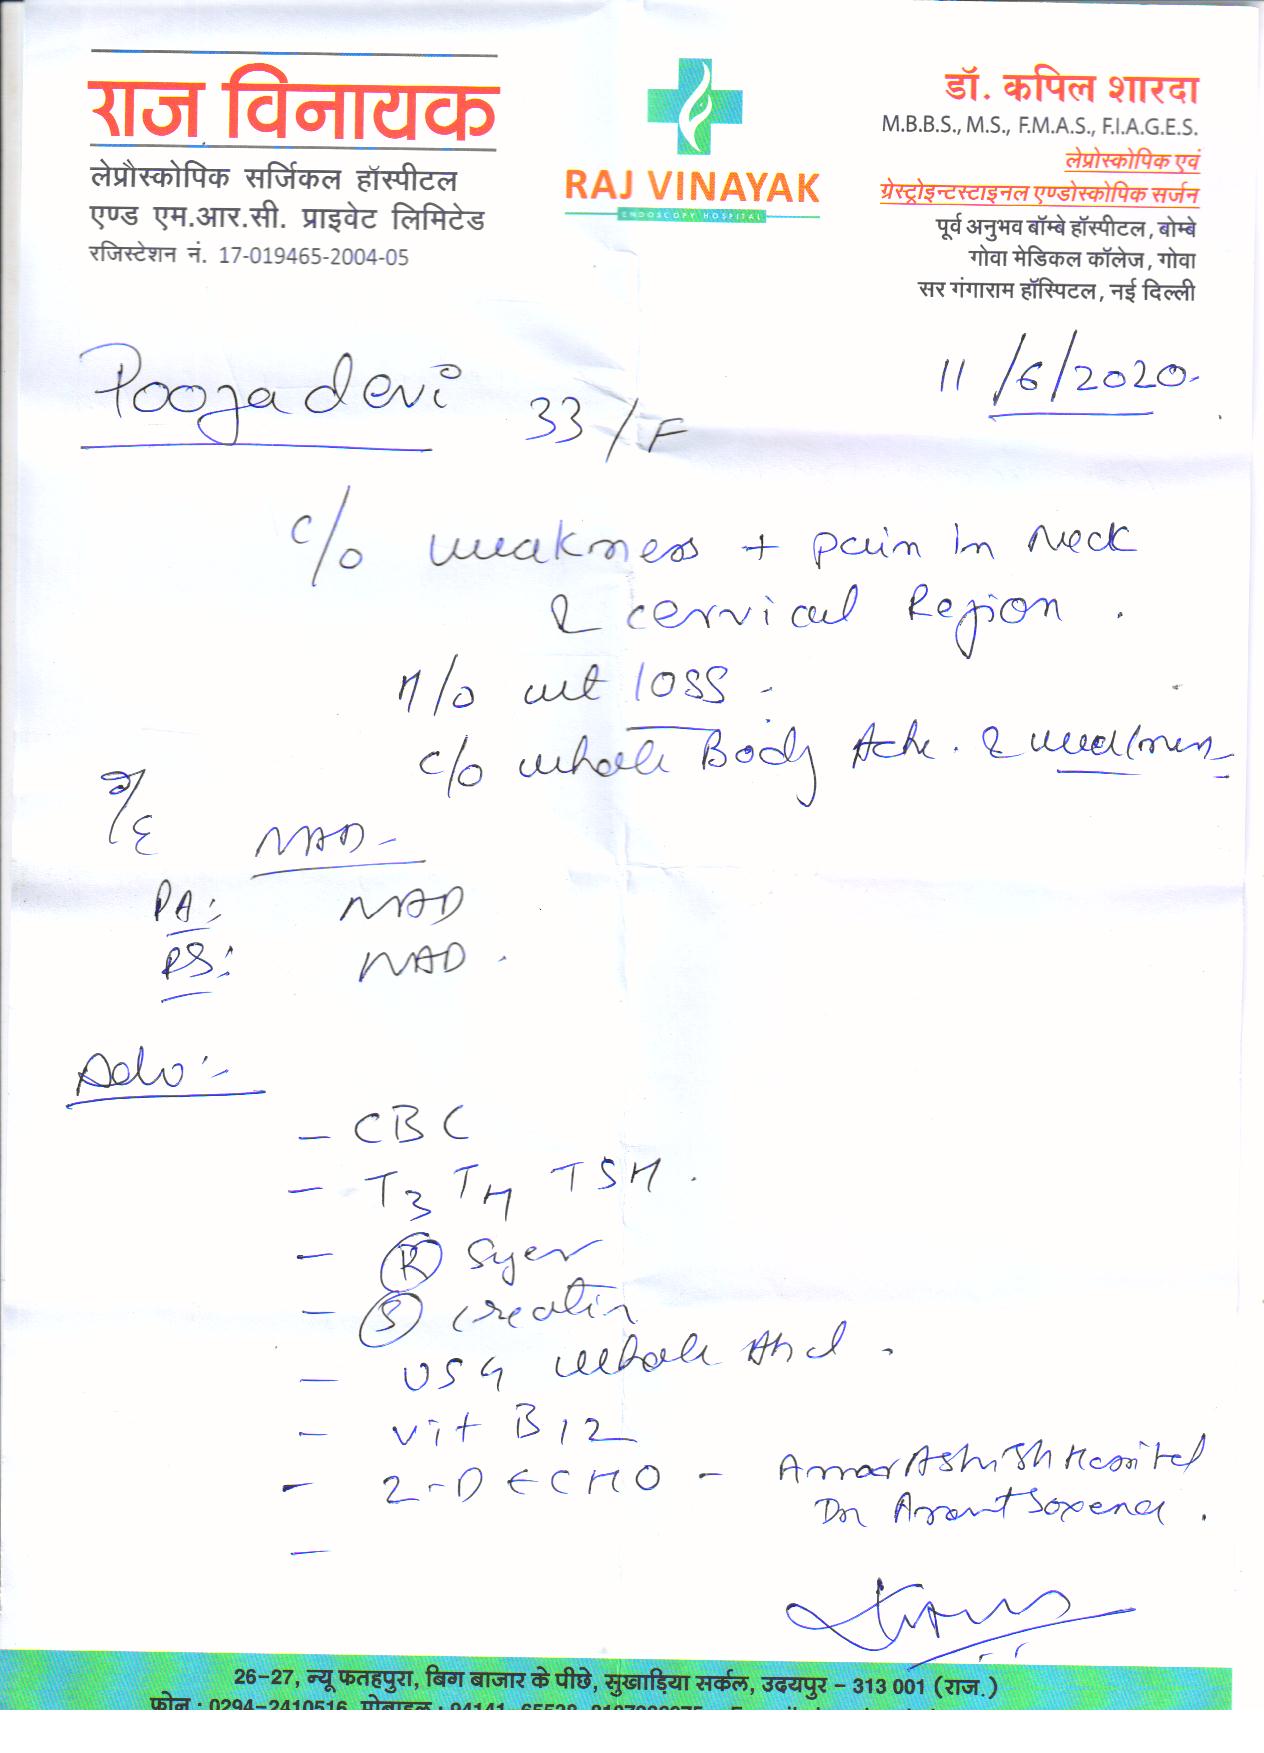 राज विनायक
लेप्रौस्कोपिक सर्जिकल हॉस्पीटल
एण्ड एम.आर.सी. प्राइवेट लिमिटेड
रजिस्टेशन नं. 17-019465-2004-05
RAJ VINAYAK
ENDOSCOPY HOSPITAL
डॉ. कपिल शारदा
M.B.B.S., M.S., F.M.A.S., F.I.A.G.E.S.
लेप्रोस्कोपिक एवं
ग्रेस्ट्रोइन्टस्टाइनल एण्डोस्कोपिक सर्जन
पूर्व अनुभव बॉम्बे हॉस्पीटल, बोम्बे
गोवा मेडिकल कॉलेज, गोवा
सर गंगाराम हॉस्पिटल, नई दिल्ली
11/6/2020
Pooja devi 33/F
c/o weakness + pain in Neck
& cervical Region.
H/o wt loss
c/o whole Body Ache. & weakness
O/E NAD
PA: NAD
RS: NAD
Adv:-
- CBC
- T3 T4 TSH.
- (R) Sger
- (S) creatin
- USG whole Abd.
- Vit B12
- 2-D ECHO - Amar Ashish Hospital
Dr Saxena.
26-27, न्यू फतहपुरा, बिग बाजार के पीछे, सुखाड़िया सर्कल, उदयपुर - 313 001 (राज.)
फोन : 0294-2410516, मोबाइल :